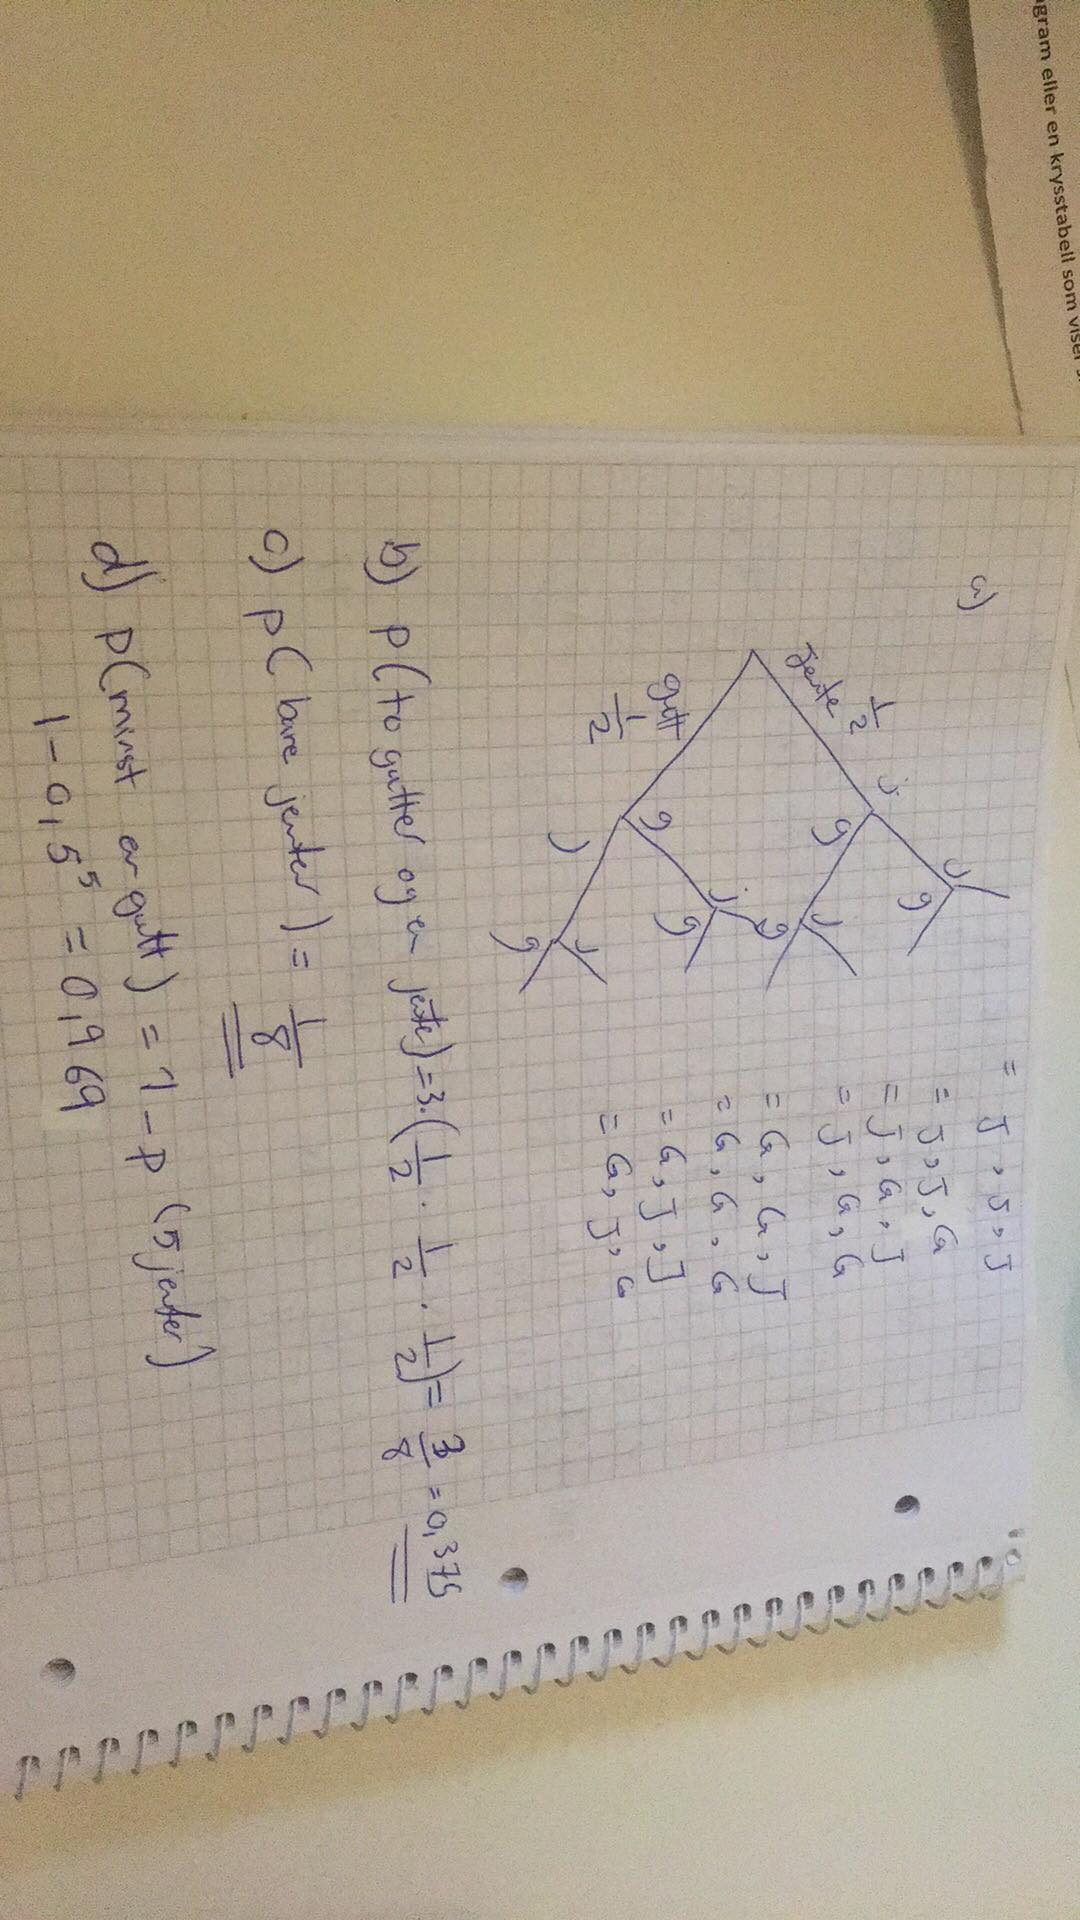 gram eller en krysstabell som viser
a)
jente 1/2
gutt 1/2
j
g
j
g
g
j
j
g
j
g
j
g
j
g
= J, J, J
= J, J, G
= J, G, J
= J, G, G
= G, G, J
= G, G, G
= G, J, J
= G, J, G
b) P(to gutter og en jenter) = 3·(1/2 · 1/2 · 1/2) = 3/8 = 0,375
c) P(bare jenter) = 1/8
d) P(minst en gutt) = 1 - P (5 jenter)
1 - 0,5⁵ = 0,969